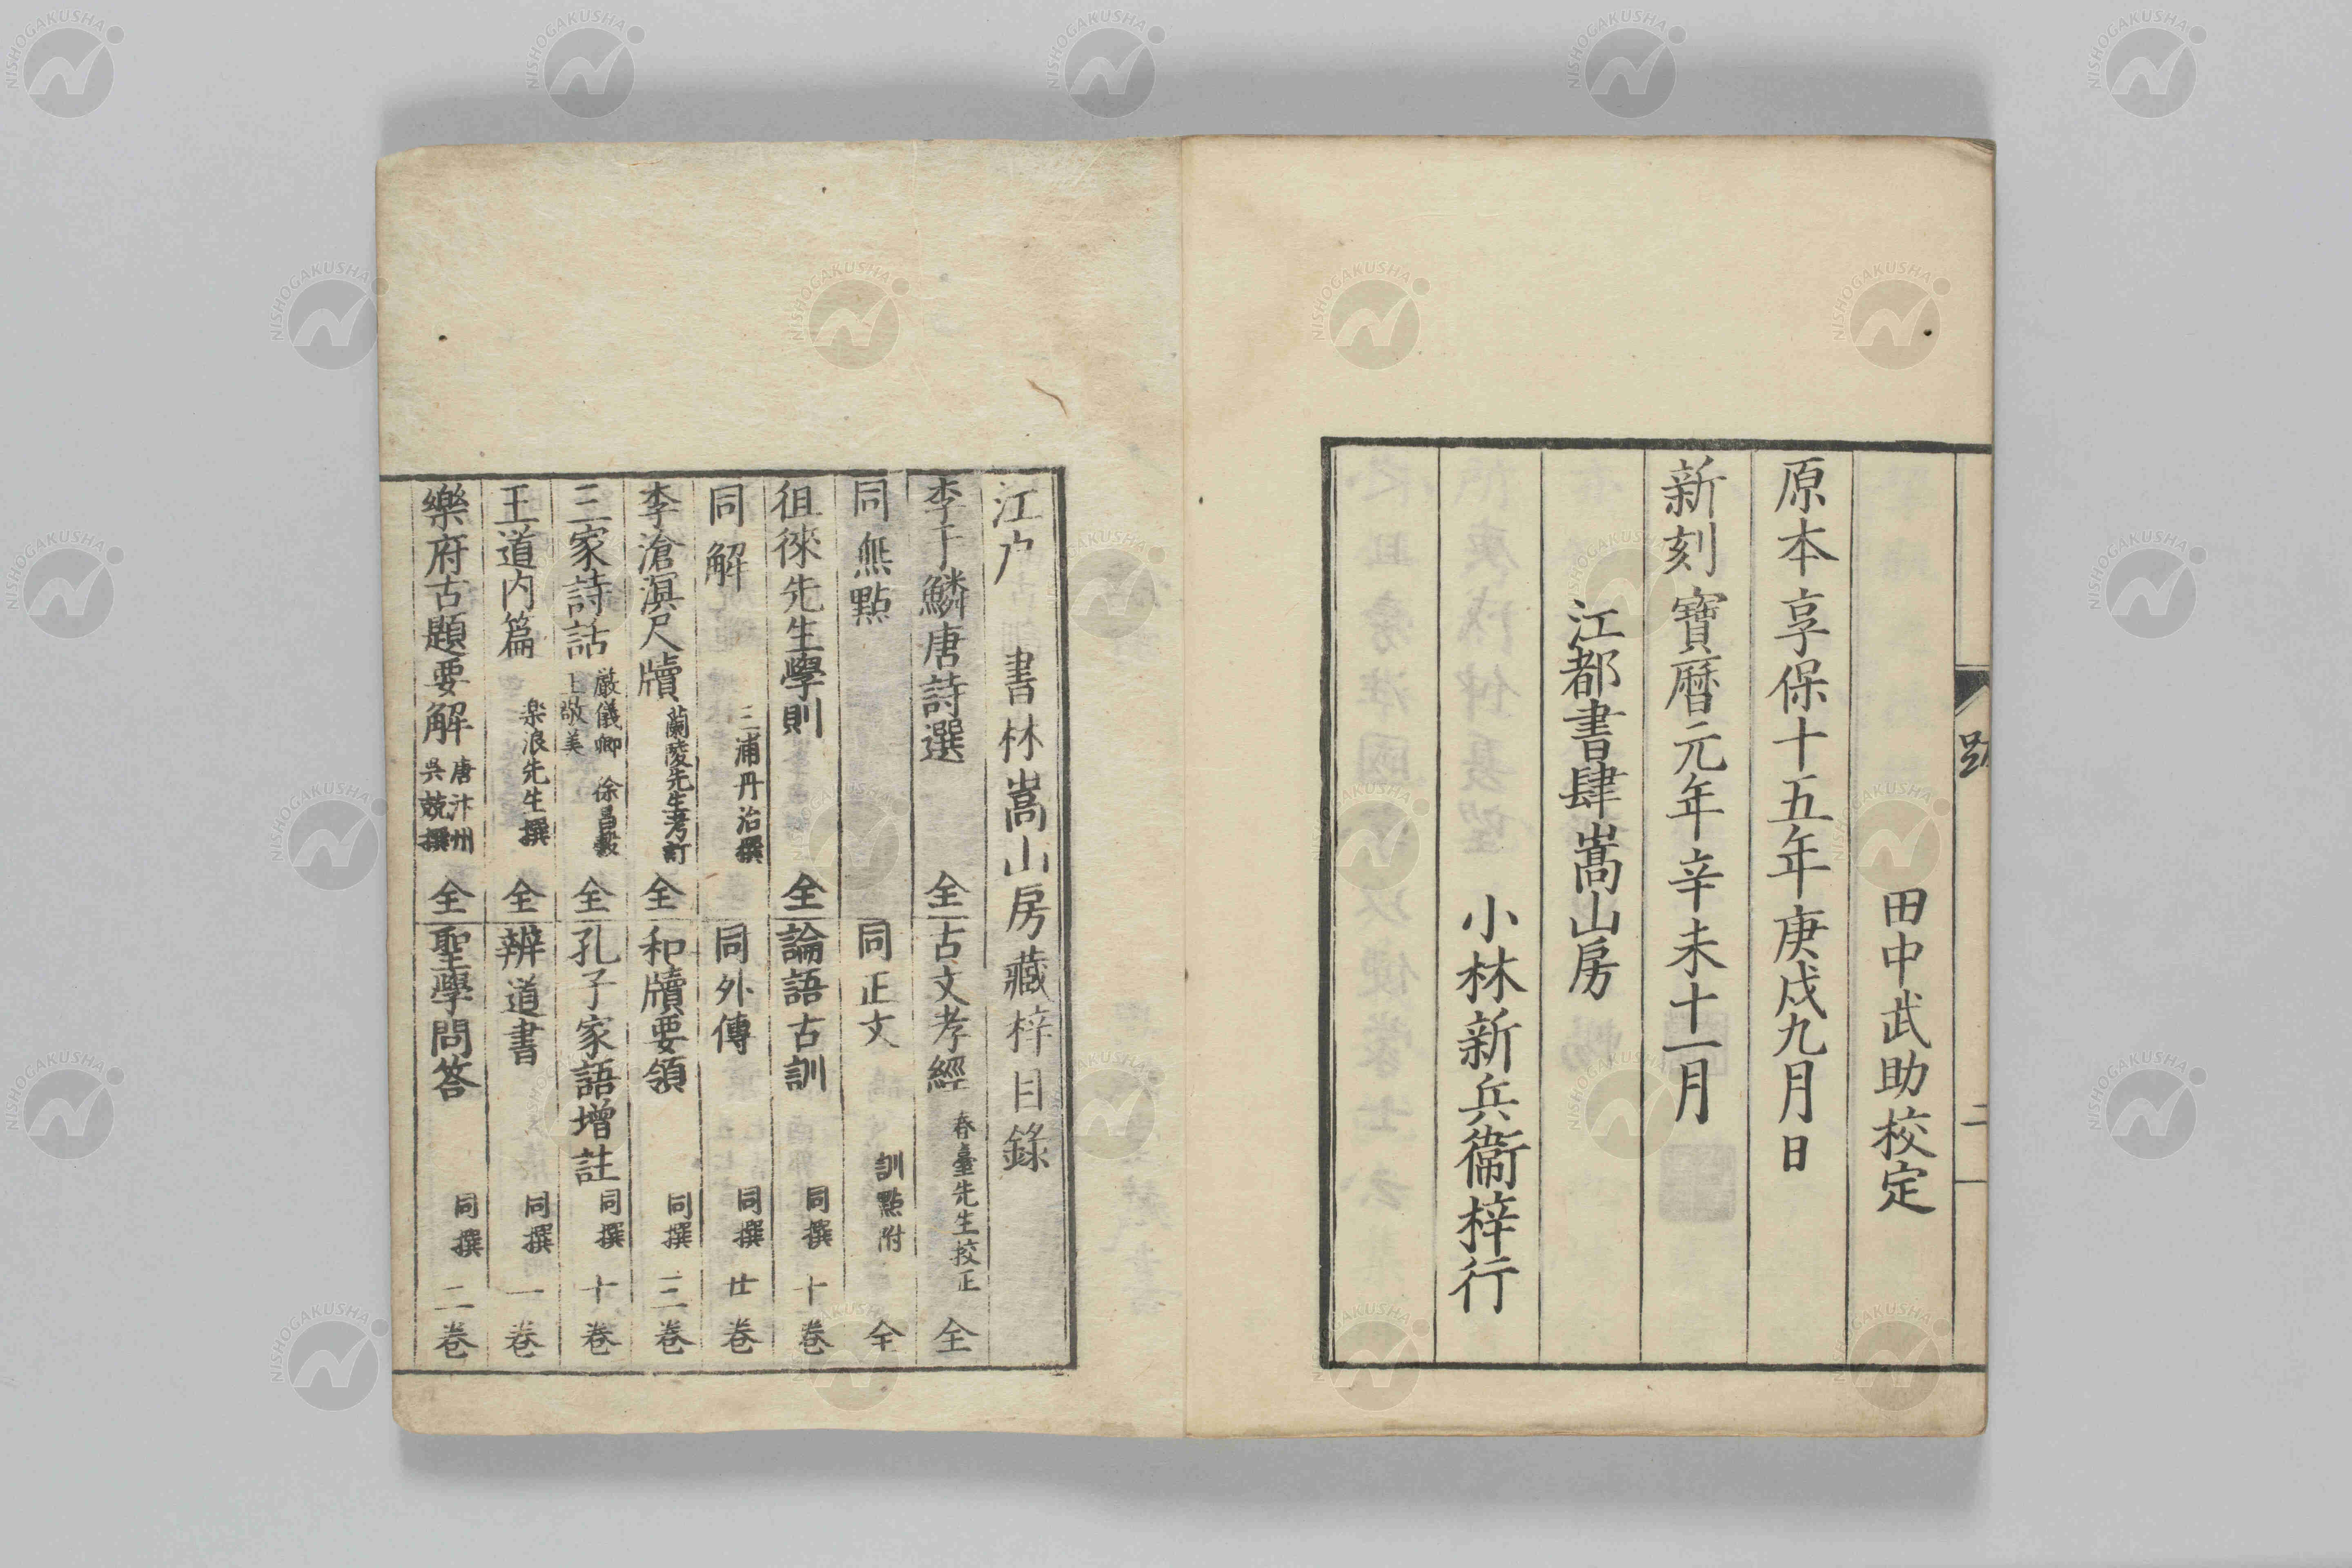 田中武助校定
原本享保十五年庚戌九月日
新刻寶曆元年辛未十一月
江都書肆嵩山房
小林新兵衞梓行
二
江戶 書林嵩山房藏梓目錄
李于鱗唐詩選 全
古文孝經 春臺先生挍正 全
同無點
同正文 訓點附 全
徂徠先生學則 全
論語古訓 同撰 十卷
同解 三浦丹治撰
同外傳 同撰 廿卷
李滄溟尺牘 蘭陵先生考訂 全
和牘要領 同撰 三卷
三家詩話 嚴儀卿 徐昌穀 王敬美 全
孔子家語增註 同撰 十卷
王道內篇 楽浪先生撰 全
辨道書 同撰 一卷
樂府古題要解 唐汴州吳兢撰 全
聖學問答 同撰 二卷
NISHOGAKUSHA